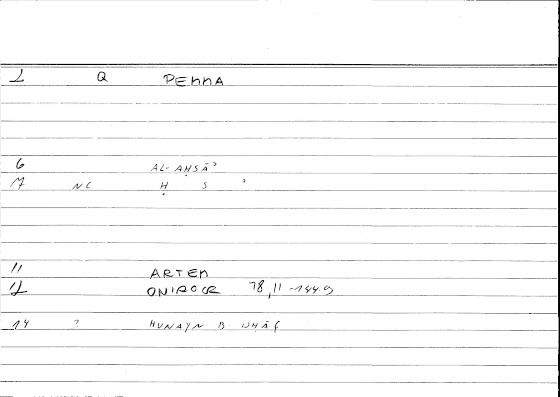 1 Q PEMMA
6 AL-AḤSĀʾ
7 NC Ḥ S ʾ
11 ARTEM
12 ONIROCR 78,11-144.9
14 ? ḤUNAYN B. ISḤĀQ